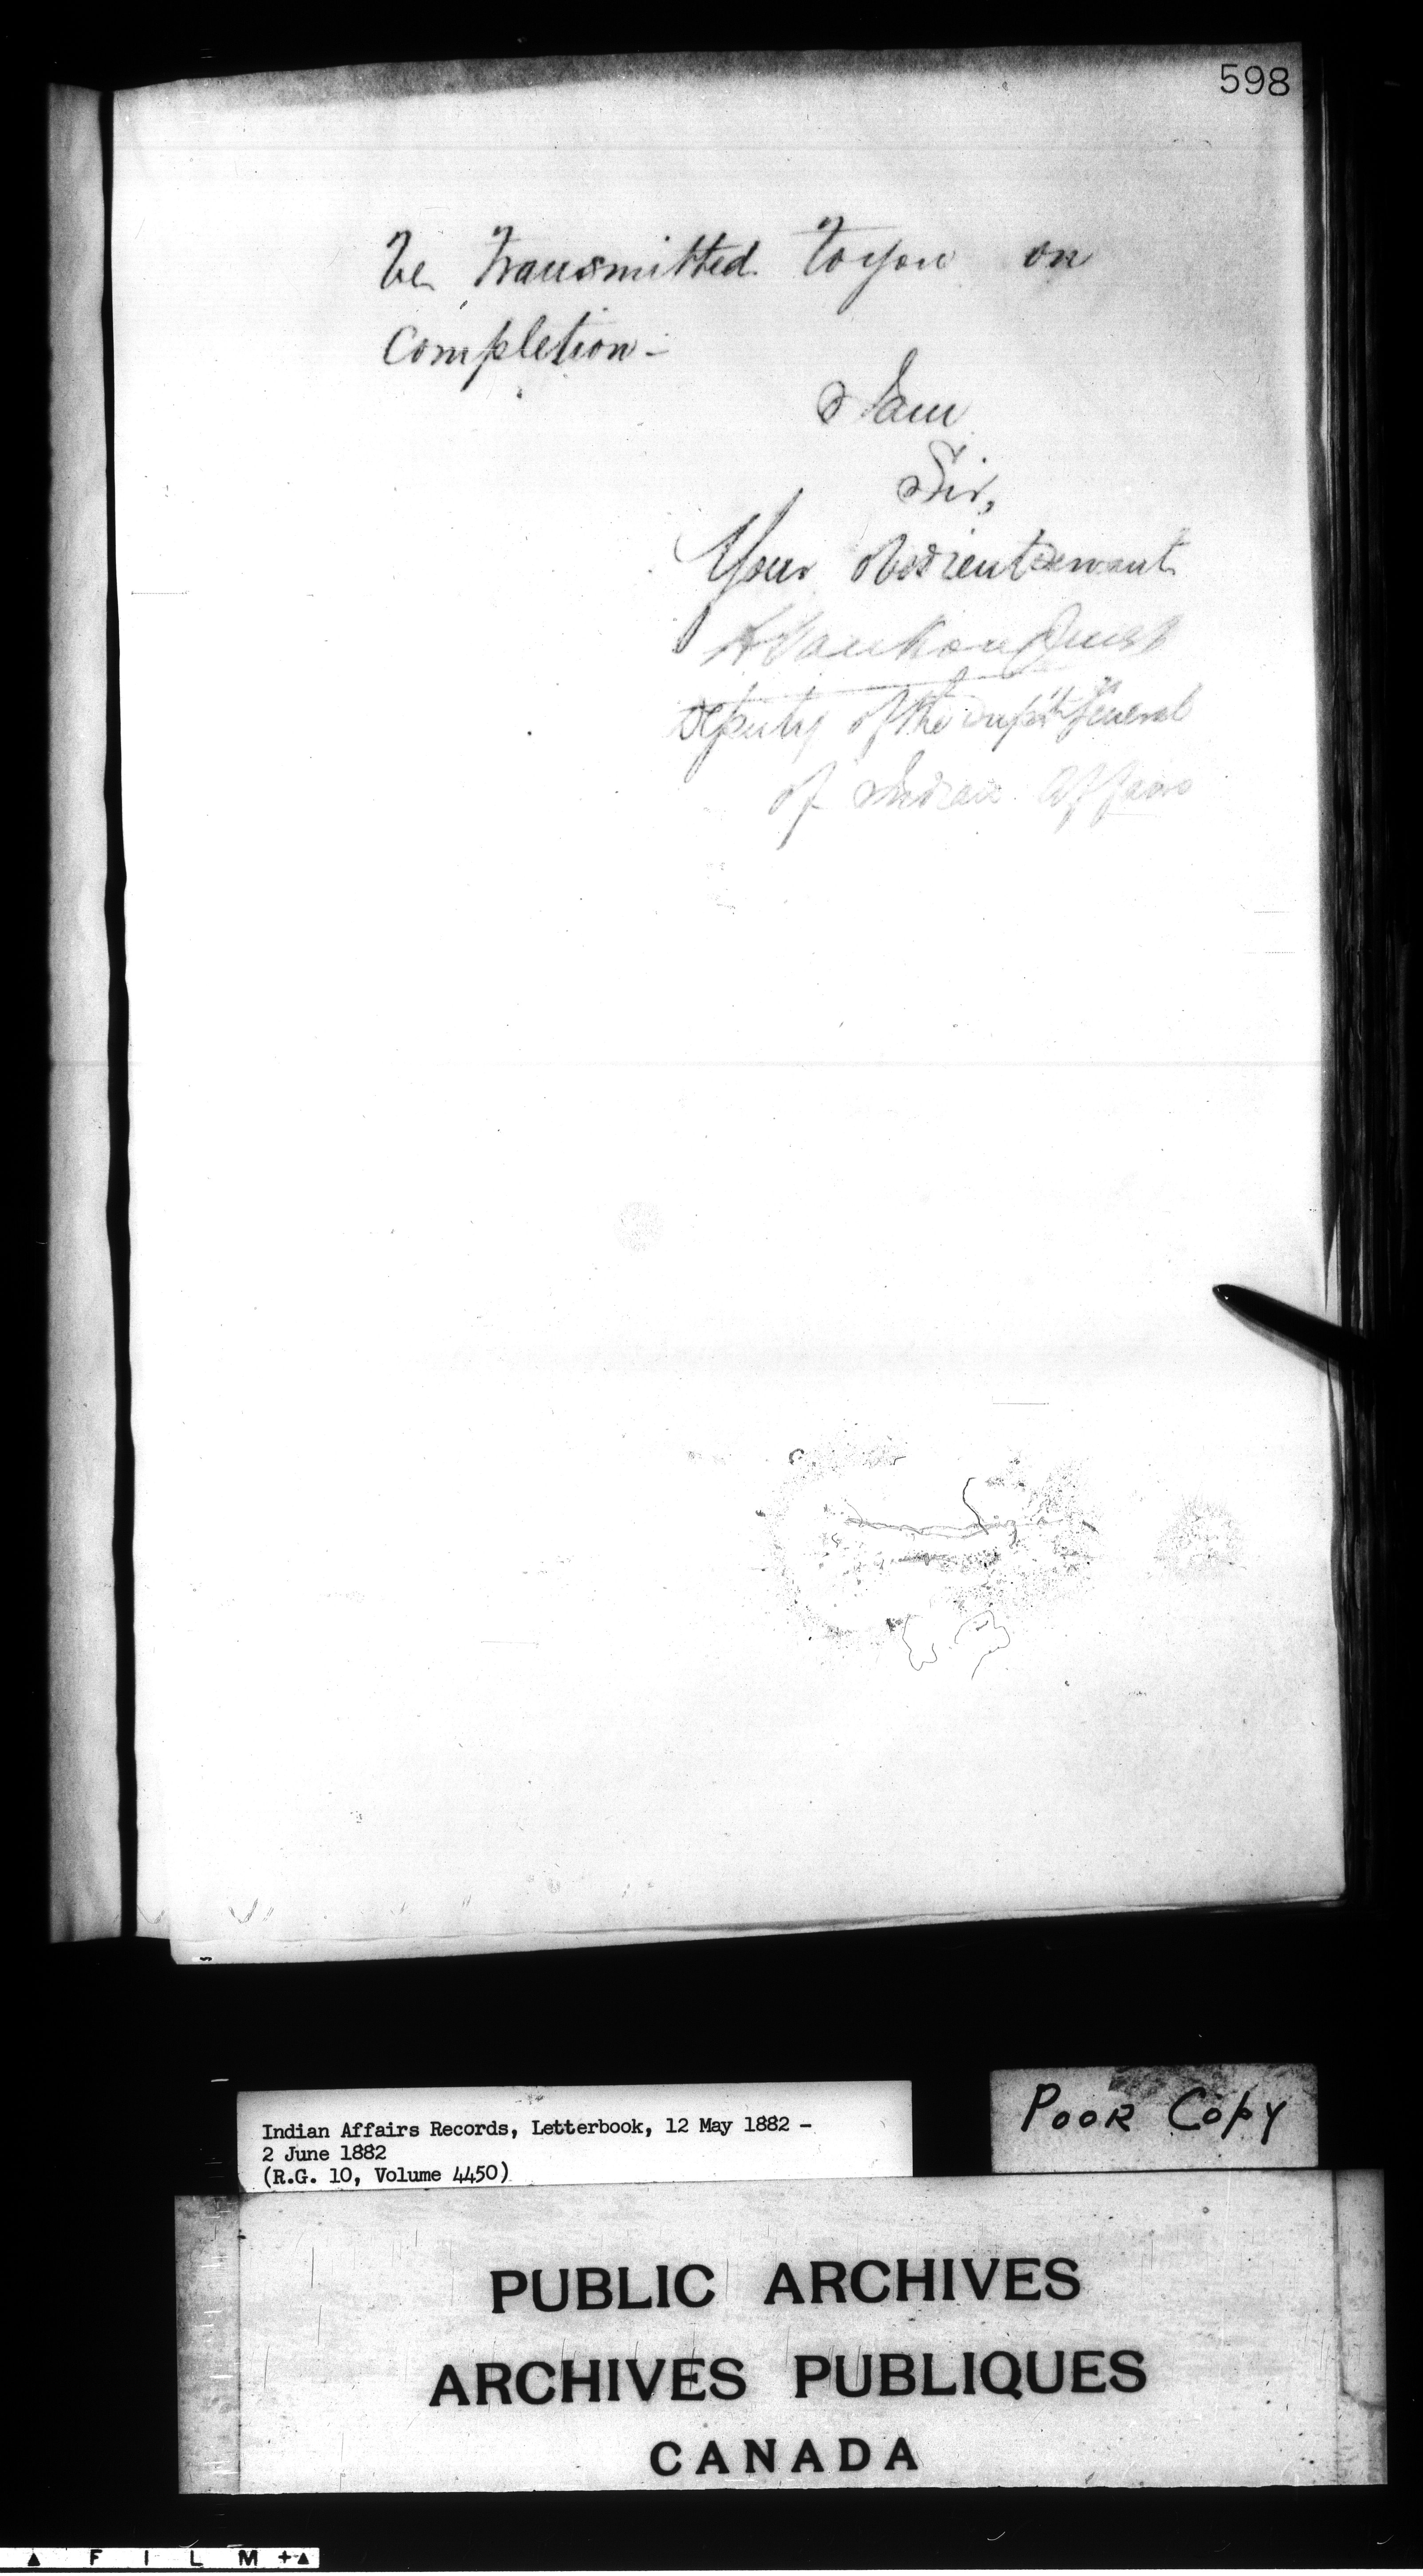 598
be transmitted to you on
completion-
I am
Sir,
Your obedient servant
L Vankoughnet
Deputy of the Supt General
of Indian Affairs
Indian Affairs Records, Letterbook, 12 May 1882 -
2 June 1882
(R.G. 10, Volume 4450)
POOR COPY
PUBLIC ARCHIVES
ARCHIVES PUBLIQUES
CANADA
FILM